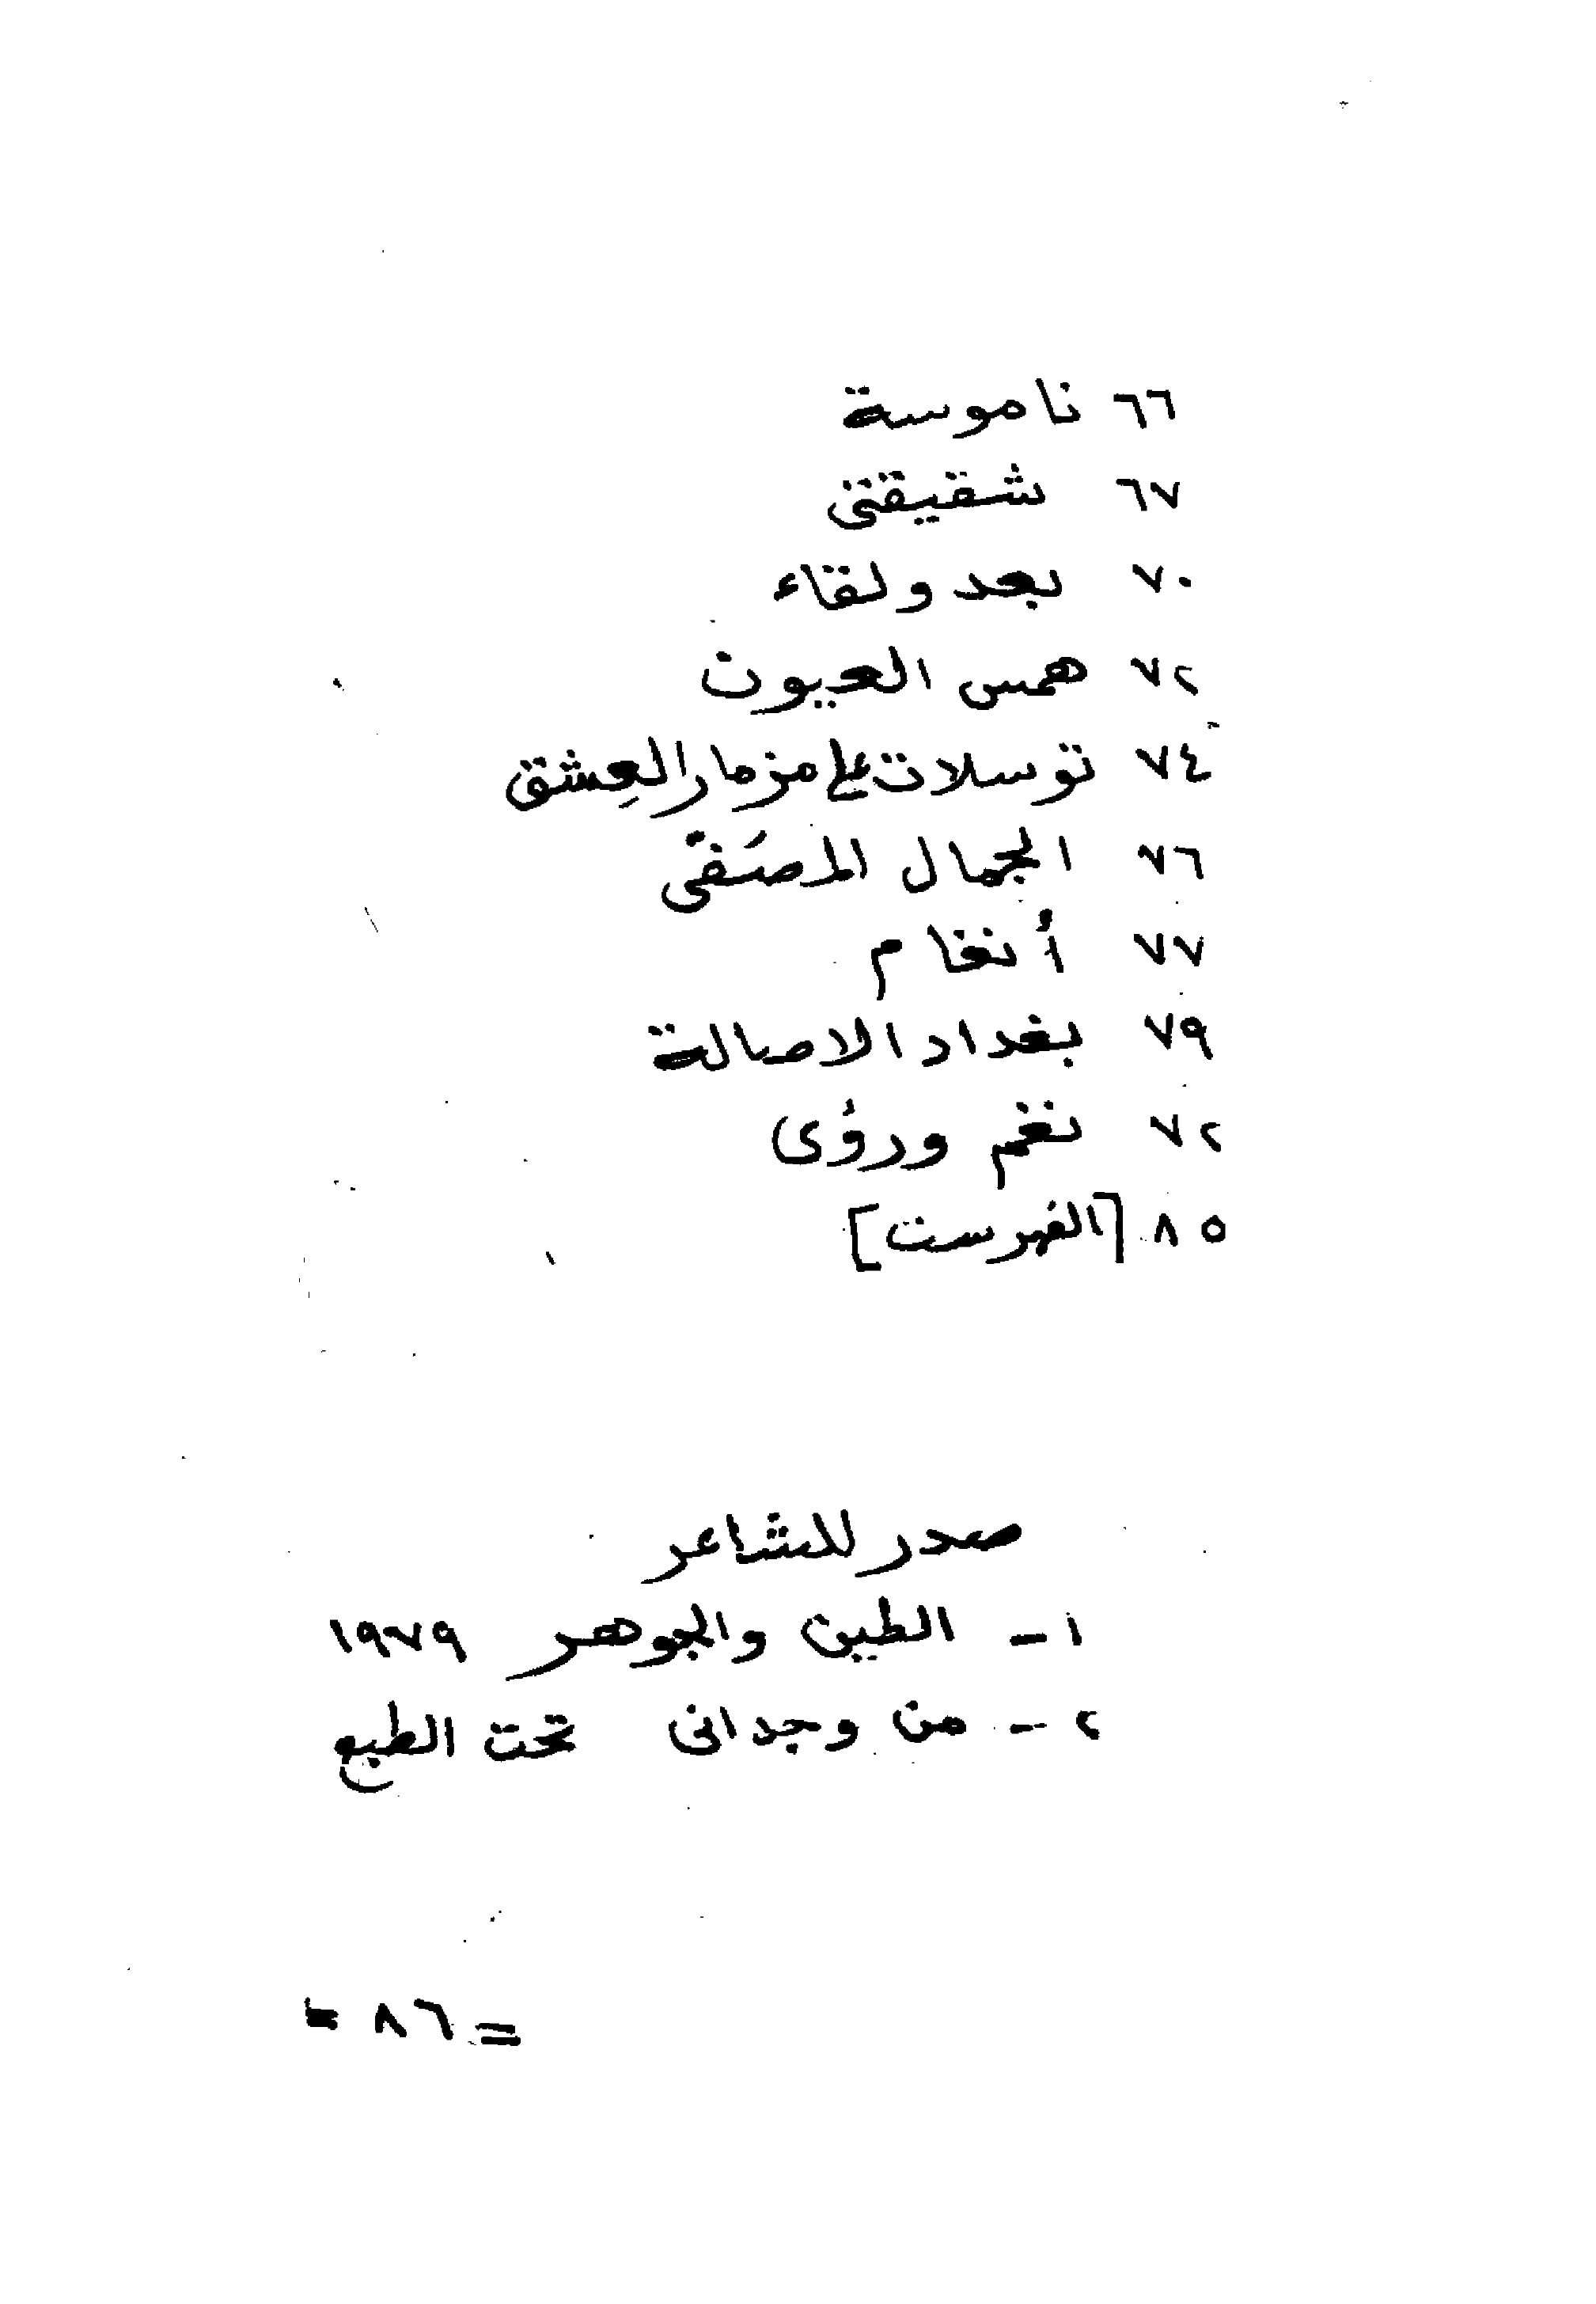 ٦٦ ناموسة
٦٧ شقيقتي
٧٠ بعد ولقاء
٧٢ همس العيون
٧٤ توسلات على مزمار العِشق
٧٦ الجمال المصَفّى
٧٧ أنغام
٧٩ بغداد الاصالة
٧٢ نغم ورؤى
٨٥ [الفهرست]
صدر للشاعر
١ـ الطين والجوهر ١٩٧٩
٢ـ من وجداني تحت الطبع
= ٨٦ =